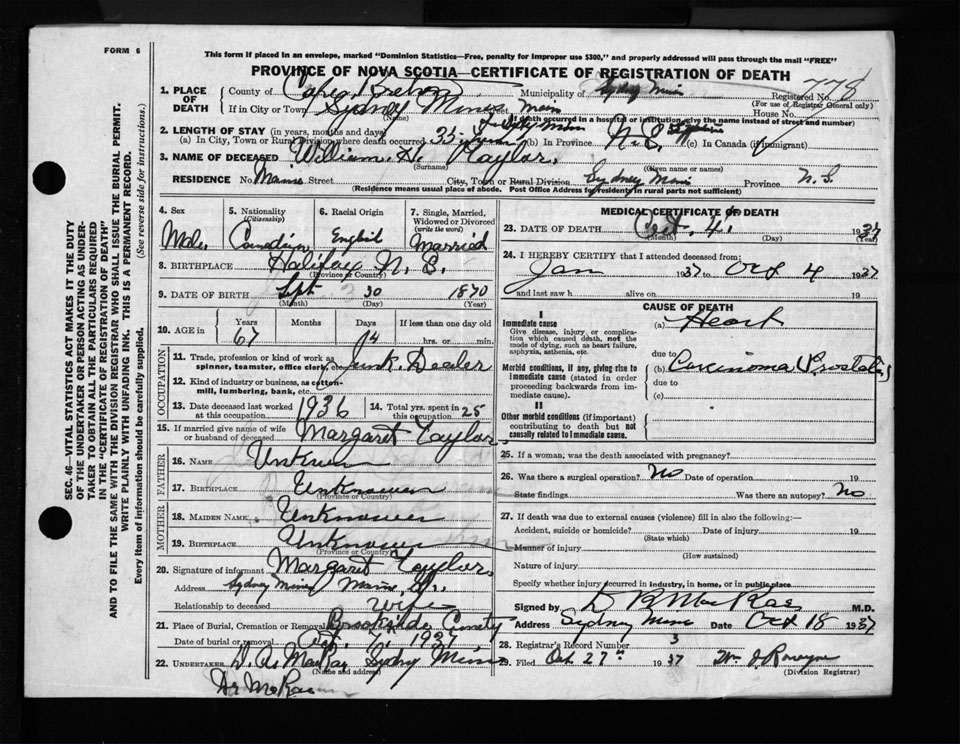 FORM 6
This form if placed in an envelope, marked "Dominion Statistics—Free, penalty for improper use $300," and properly addressed will pass through the mail "FREE"
PROVINCE OF NOVA SCOTIA—CERTIFICATE OF REGISTRATION OF DEATH
SEC. 46—VITAL STATISTICS ACT MAKES IT THE DUTY
OF THE UNDERTAKER OR PERSON ACTING AS UNDER-
TAKER TO OBTAIN ALL THE PARTICULARS REQUIRED
IN THE "CERTIFICATE OF REGISTRATION OF DEATH"
AND TO FILE THE SAME WITH THE DIVISION REGISTRAR WHO SHALL ISSUE THE BURIAL PERMIT.
WRITE PLAINLY WITH UNFADING INK. THIS IS A PERMANENT RECORD.
Every item of information should be carefully supplied. (See reverse side for instructions.)
1. PLACE OF DEATH
County of Cape Breton Municipality of Sydney Mines Registered No. 778
(For use of Registrar General only)
If in City or Town Sydney Mines Street Main House No.
(Name) (If death occurred in a hospital or institution, give the name instead of street and number)
2. LENGTH OF STAY (in years, months and days)
(a) In City, Town or Rural Division where death occurred 35 years (b) In Province N.S. (c) In Canada (if immigrant)
3. NAME OF DECEASED William H. Taylor
(Surname) (Given name or names)
RESIDENCE No. Main Street City, Town or Rural Division Sydney Mines Province N.S.
(Residence means usual place of abode. Post Office Address for residents in rural parts not sufficient)
4. Sex Male
5. Nationality (Citizenship) Canadian
6. Racial Origin English
7. Single, Married, Widowed or Divorced (write the word) Married
8. BIRTHPLACE Halifax N.S.
(Province or Country)
9. DATE OF BIRTH Sept 30 1870
(Month) (Day) (Year)
10. AGE in Years 67 Months Days 14 If less than one day old
hrs. or min.
OCCUPATION
11. Trade, profession or kind of work as spinner, teamster, office clerk, etc. Junk Dealer
12. Kind of industry or business, as cotton-mill, lumbering, bank, etc.
13. Date deceased last worked at this occupation 1936 14. Total yrs. spent in this occupation 25
15. If married give name of wife or husband of deceased Margaret Taylor
FATHER
16. NAME Unknown
17. BIRTHPLACE Unknown
(Province or Country)
MOTHER
18. MAIDEN NAME Unknown
19. BIRTHPLACE Unknown
(Province or Country)
20. Signature of informant Margaret Taylor
Address Sydney Mines Main St.
Relationship to deceased Wife
21. Place of Burial, Cremation or Removal Brookside Cemetery
Date of burial or removal Oct. 1937
22. UNDERTAKER Sydney Mines
(Name and address)
Dr McRae
MEDICAL CERTIFICATE OF DEATH
23. DATE OF DEATH Oct. 4 1937
(Month) (Day) (Year)
24. I HEREBY CERTIFY that I attended deceased from:
Jan 1937 to Oct 4 1937
and last saw h alive on 19
CAUSE OF DEATH
I
Immediate cause
Give disease, injury or complication which caused death, not the mode of dying, such as heart failure, asphyxia, asthenia, etc.
(a) Heart
due to
Morbid conditions, if any, giving rise to immediate cause (stated in order proceeding backwards from immediate cause).
(b) Carcinoma (Prostate)
due to
(c)
II
Other morbid conditions (if important) contributing to death but not causally related to immediate cause.
25. If a woman, was the death associated with pregnancy?
26. Was there a surgical operation? No Date of operation 19
State findings Was there an autopsy? No
27. If death was due to external causes (violence) fill in also the following:—
Accident, suicide or homicide? Date of injury 19
(State which)
Manner of injury
(How sustained)
Nature of injury
Specify whether injury occurred in industry, in home, or in public place
Signed by D R MacRae M.D.
Address Sydney Mines Date Oct 18 1937
28. Registrar's Record Number 3
29. Filed Oct 27th 1937
(Division Registrar)